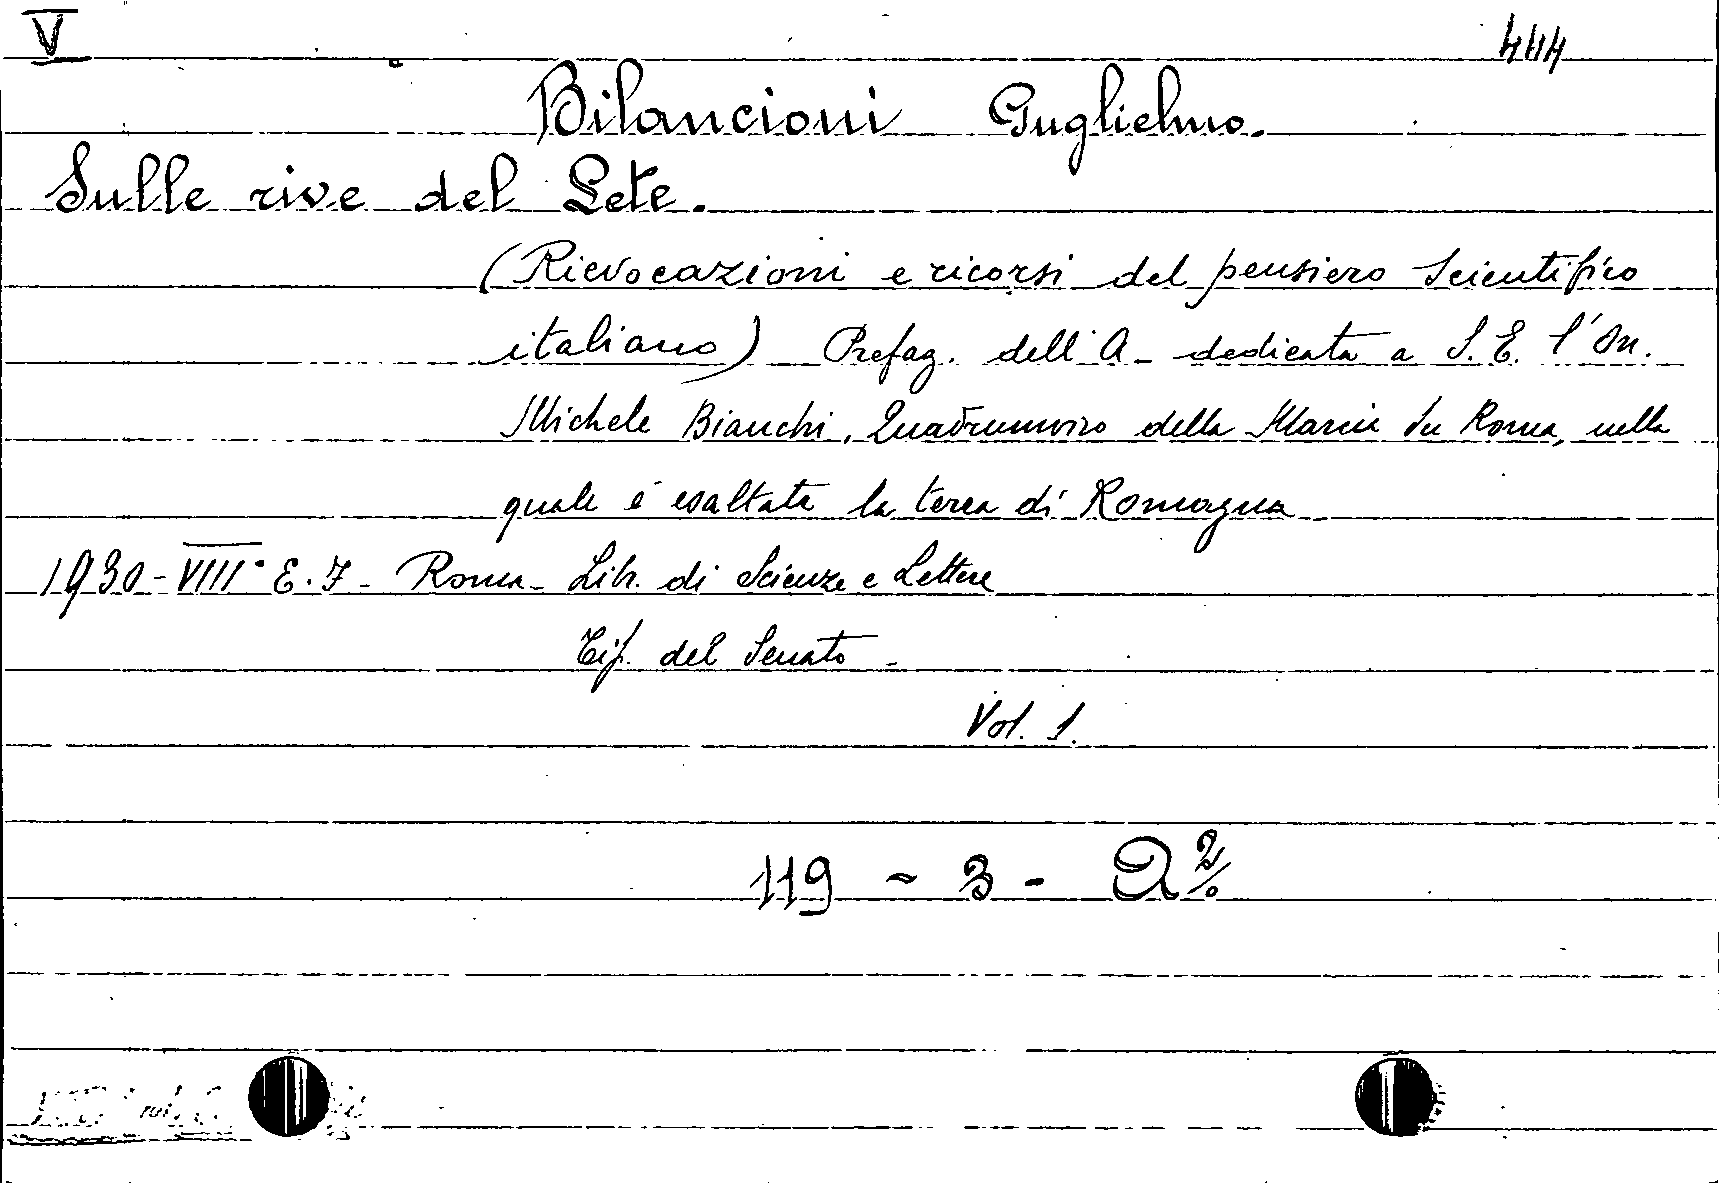 V 444
Bilancioni Guglielmo.
Sulle rive del Lete.
(Rievocazioni e ricorsi del pensiero scientifico
italiano) Prefaz. dell'A - dedicata a S. E. l'On.
Michele Bianchi, Quadrumviro della Marcia su Roma, nella
quale è esaltata la terra di Romagna
1930 - VIII° E. F - Roma - Lib. di Scienze e Lettere
Tip. del Senato -
Vol. 1.
119 - 3 - A